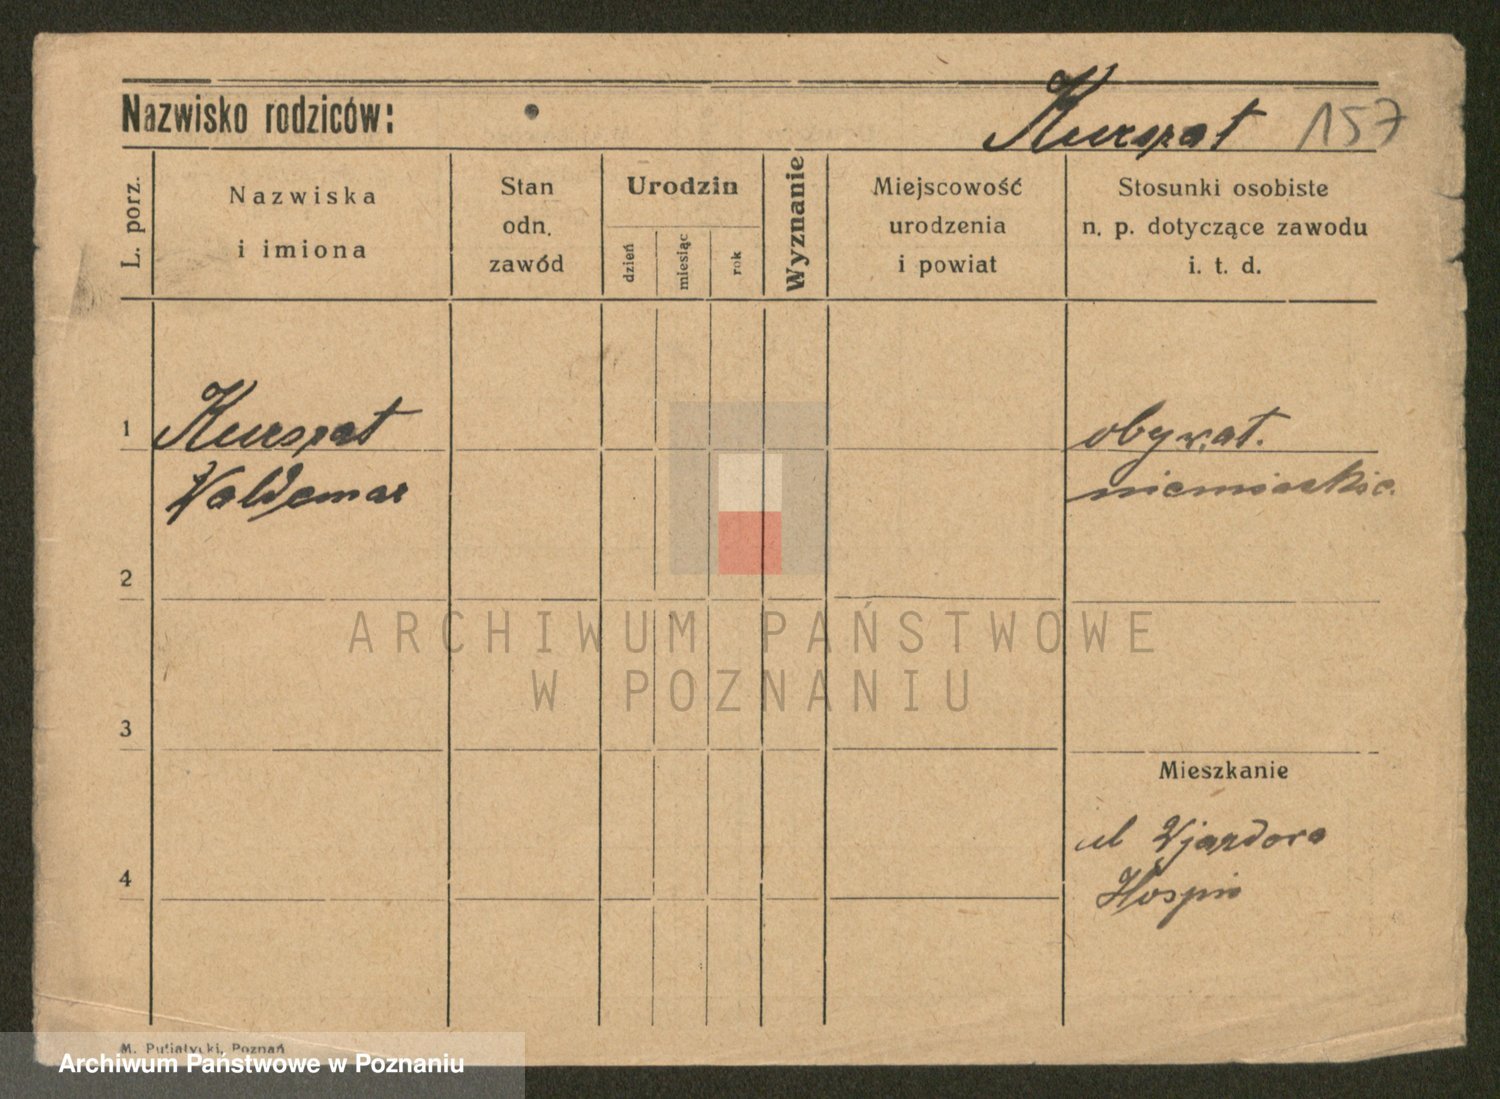 Nazwisko rodziców: Kurspat 157
L. porz.
Nazwiska
i imiona
Stan
odn.
zawód
Urodzin
dzień
miesiąc
rok
Wyznanie
Miejscowość
urodzenia
i powiat
Stosunki osobiste
n. p. dotyczące zawodu
i. t. d.
1 Kurspat obywat.
Waldemar niemieckie.
2
ARCHIWUM PAŃSTWOWE
W POZNANIU
3
Mieszkanie
ul Wjazdowa
4 Hospis
M. Putiatycki, Poznań
Archiwum Państwowe w Poznaniu